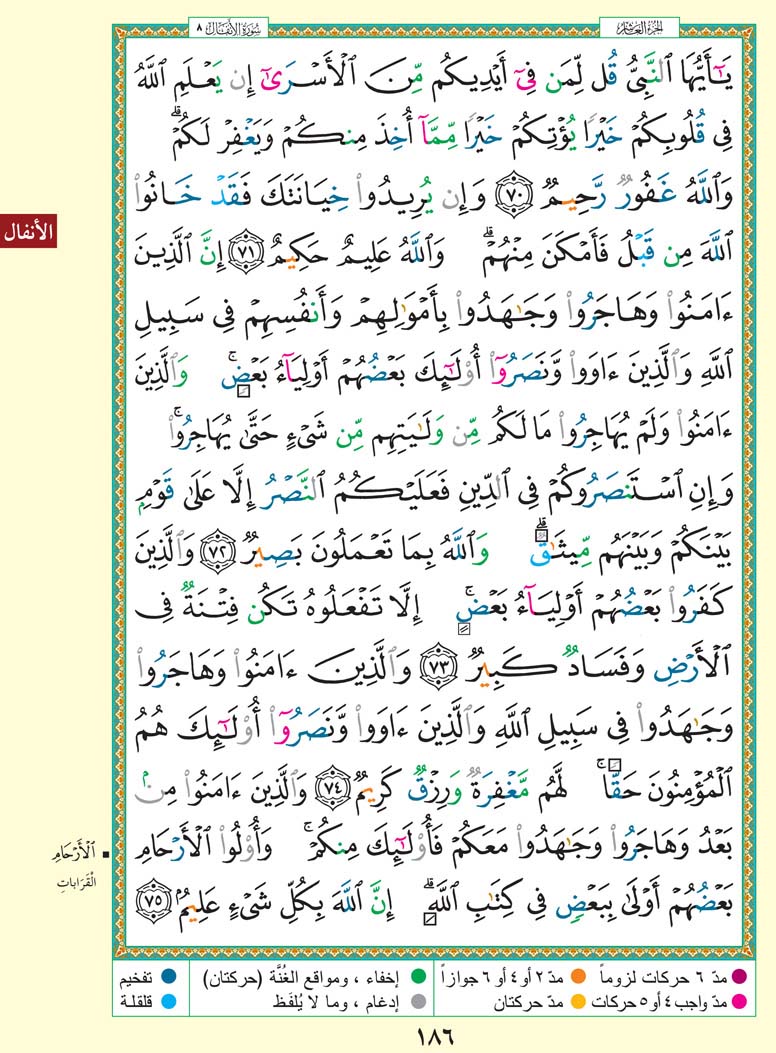 سُورَةُ الأَنفَال ٨
الجُزءُ العَاشِر
يَٰٓأَيُّهَا ٱلنَّبِىُّ قُل لِّمَن فِىٓ أَيْدِيكُم مِّنَ ٱلْأَسْرَىٰٓ إِن يَعْلَمِ ٱللَّهُ
فِى قُلُوبِكُمْ خَيْرًا يُؤْتِكُمْ خَيْرًا مِّمَّآ أُخِذَ مِنكُمْ وَيَغْفِرْ لَكُمْ ۗ
وَٱللَّهُ غَفُورٌ رَّحِيمٌ ﴿٧٠﴾ وَإِن يُرِيدُوا۟ خِيَانَتَكَ فَقَدْ خَانُوا۟
ٱللَّهَ مِن قَبْلُ فَأَمْكَنَ مِنْهُمْ ۗ وَٱللَّهُ عَلِيمٌ حَكِيمٌ ﴿٧١﴾ إِنَّ ٱلَّذِينَ
ءَامَنُوا۟ وَهَاجَرُوا۟ وَجَٰهَدُوا۟ بِأَمْوَٰلِهِمْ وَأَنفُسِهِمْ فِى سَبِيلِ
ٱللَّهِ وَٱلَّذِينَ ءَاوَوا۟ وَّنَصَرُوٓا۟ أُو۟لَٰٓئِكَ بَعْضُهُمْ أَوْلِيَآءُ بَعْضٍ ۚ وَٱلَّذِينَ
ءَامَنُوا۟ وَلَمْ يُهَاجِرُوا۟ مَا لَكُم مِّن وَلَٰيَتِهِم مِّن شَىْءٍ حَتَّىٰ يُهَاجِرُوا۟ ۚ
وَإِنِ ٱسْتَنصَرُوكُمْ فِى ٱلدِّينِ فَعَلَيْكُمُ ٱلنَّصْرُ إِلَّا عَلَىٰ قَوْمٍۭ
بَيْنَكُمْ وَبَيْنَهُم مِّيثَٰقٌ ۗ وَٱللَّهُ بِمَا تَعْمَلُونَ بَصِيرٌ ﴿٧٢﴾ وَٱلَّذِينَ
كَفَرُوا۟ بَعْضُهُمْ أَوْلِيَآءُ بَعْضٍ ۚ إِلَّا تَفْعَلُوهُ تَكُن فِتْنَةٌ فِى
ٱلْأَرْضِ وَفَسَادٌ كَبِيرٌ ﴿٧٣﴾ وَٱلَّذِينَ ءَامَنُوا۟ وَهَاجَرُوا۟
وَجَٰهَدُوا۟ فِى سَبِيلِ ٱللَّهِ وَٱلَّذِينَ ءَاوَوا۟ وَّنَصَرُوٓا۟ أُو۟لَٰٓئِكَ هُمُ
ٱلْمُؤْمِنُونَ حَقًّا ۚ لَّهُم مَّغْفِرَةٌ وَرِزْقٌ كَرِيمٌ ﴿٧٤﴾ وَٱلَّذِينَ ءَامَنُوا۟ مِنۢ
بَعْدُ وَهَاجَرُوا۟ وَجَٰهَدُوا۟ مَعَكُمْ فَأُو۟لَٰٓئِكَ مِنكُمْ ۚ وَأُو۟لُوا۟ ٱلْأَرْحَامِ
بَعْضُهُمْ أَوْلَىٰ بِبَعْضٍ فِى كِتَٰبِ ٱللَّهِ ۗ إِنَّ ٱللَّهَ بِكُلِّ شَىْءٍ عَلِيمٌۢ ﴿٧٥﴾
الأنفال
▪ ٱلْأَرْحَامِ
القَرَاباتِ
● مدّ ٦ حركات لزوماً ● مدّ ٢ أو ٤ أو ٦ جوازاً ● إخفاء ، ومواقع الغُنَّة (حركتان) ● تفخيم
● مدّ واجب ٤ أو ٥ حركات ● مدّ حركتان ● إدغام ، وما لا يُلفَظ ● قلقلة
١٨٦